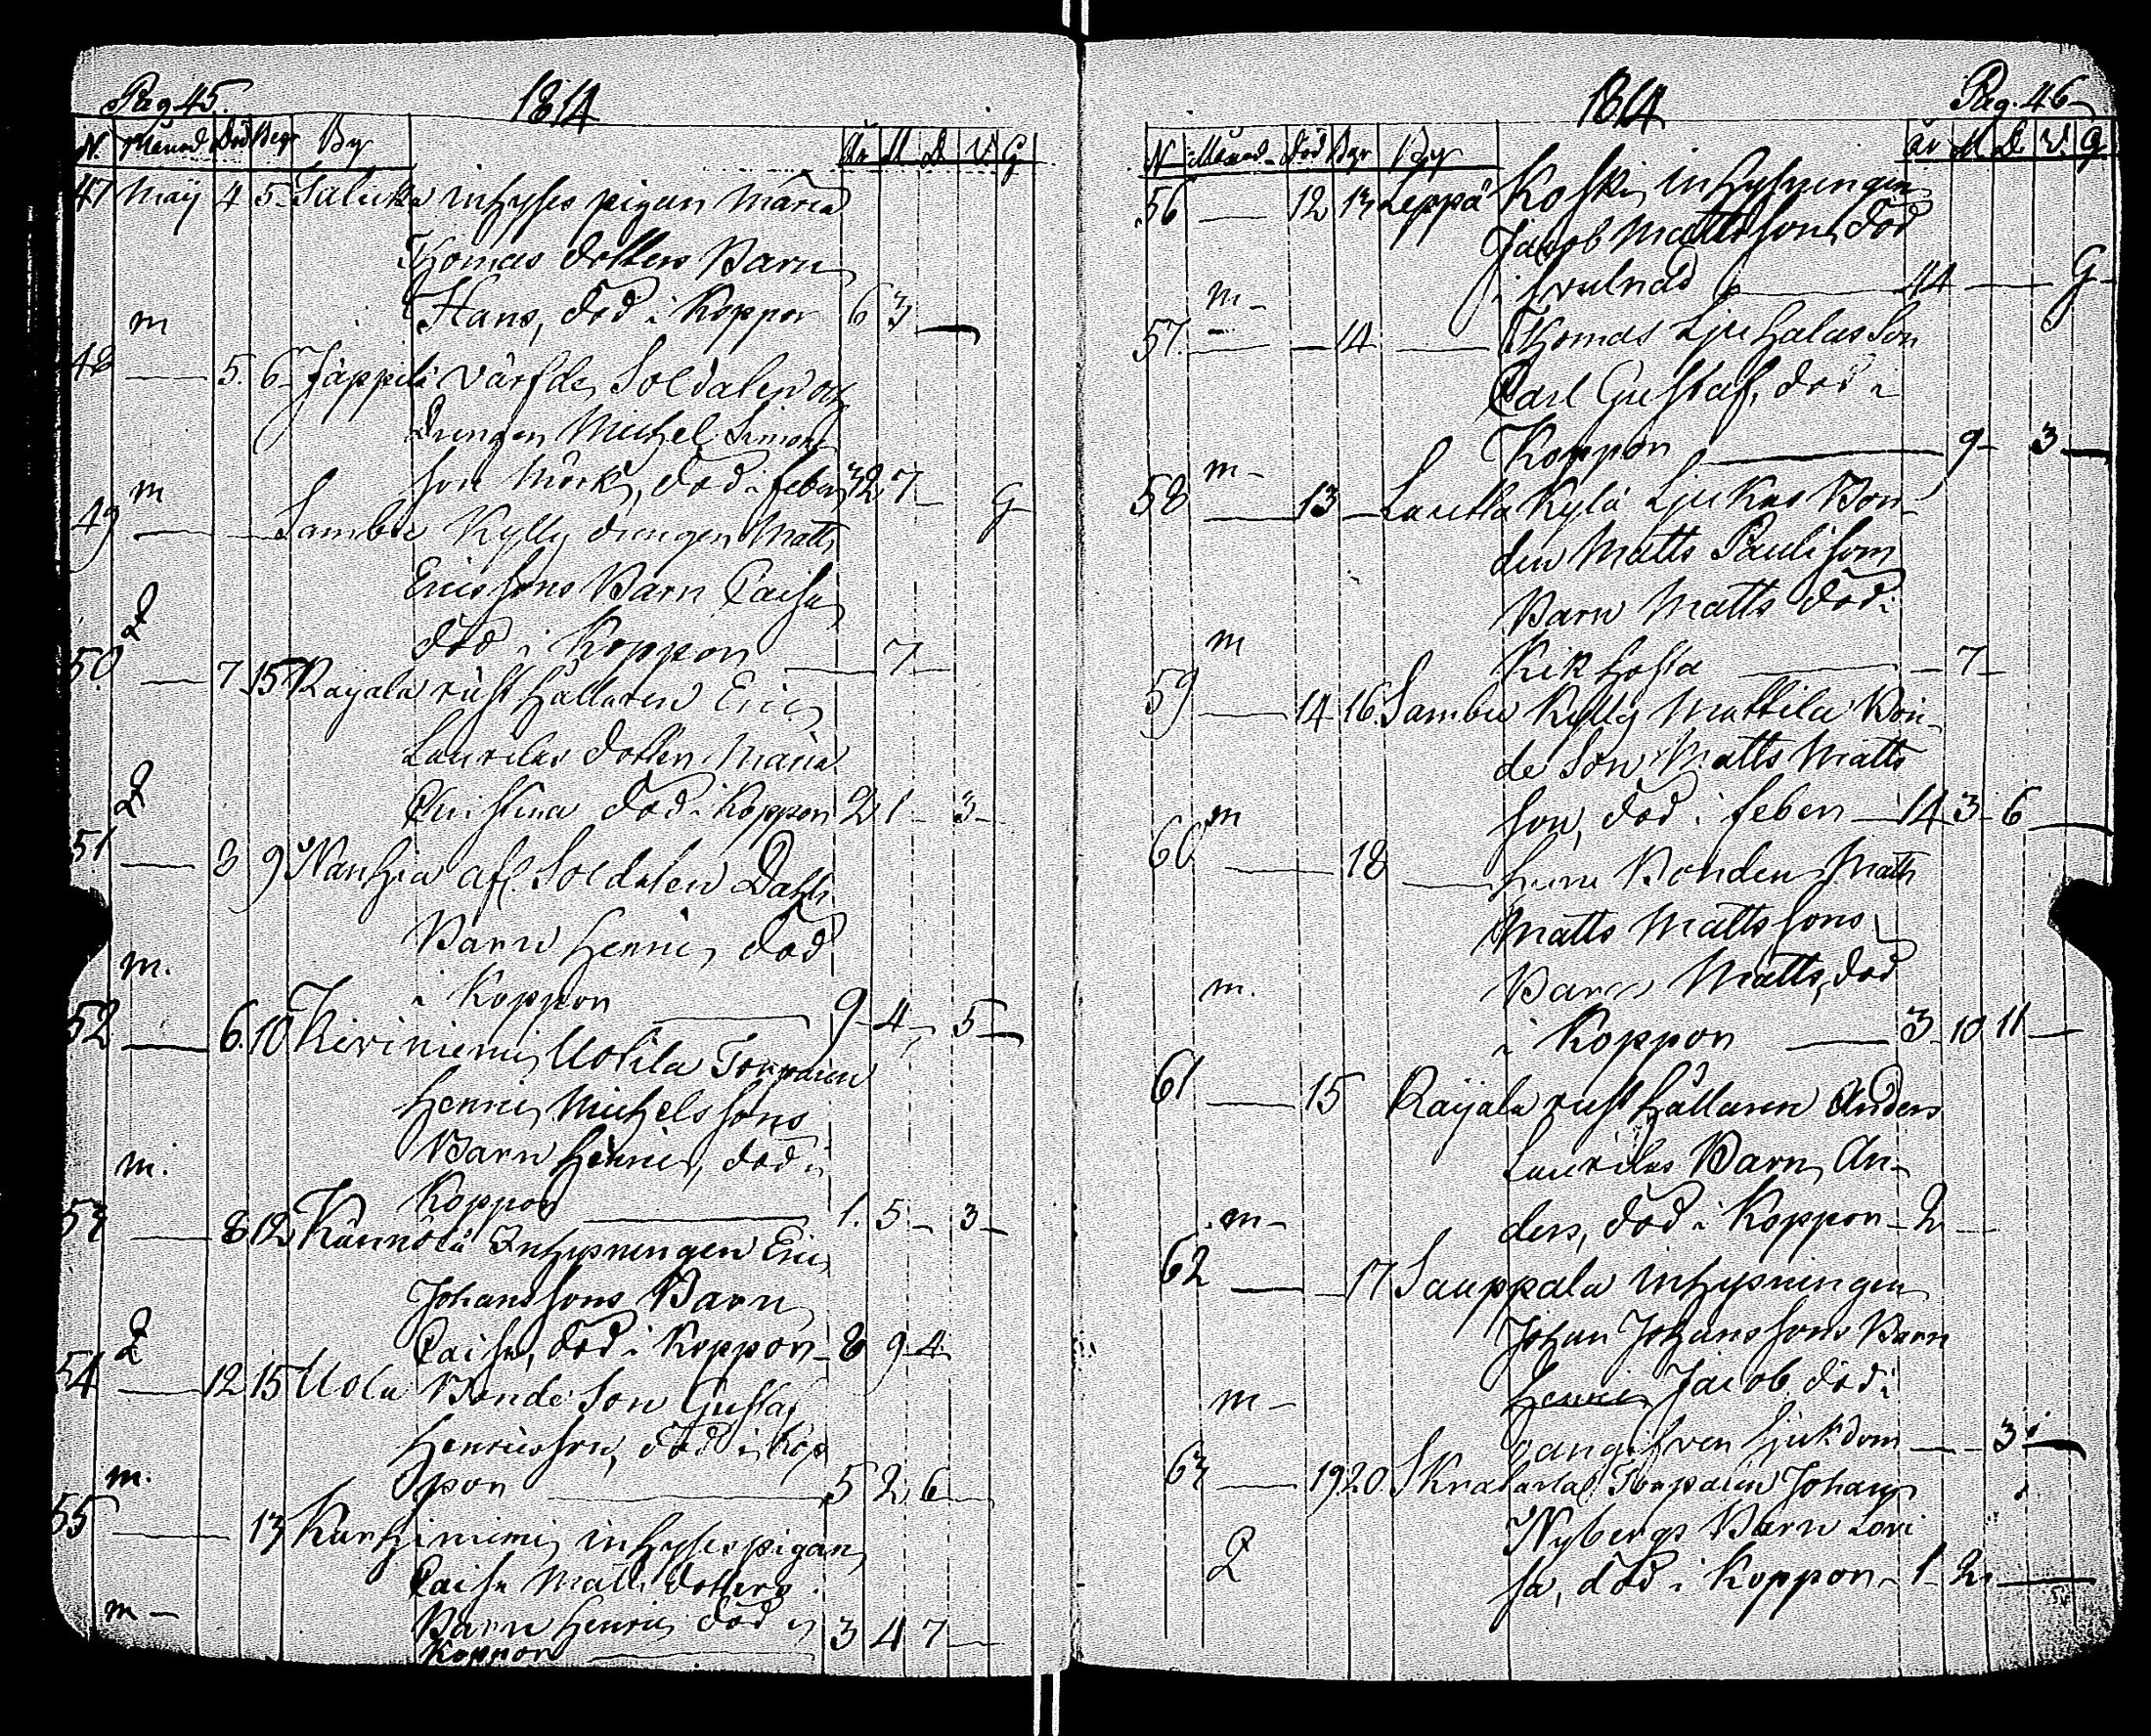 Pag. 45. 1814
N. Månad Död Begr By År M D V. G
47 Maij 4 5 Saluka inhyses pigan Maria
Thomas dotters Barn
m Hans, död i Koppor 6 3 —
48 — 5. 6 Jäppilä värfde Soldaten
Drengen Michel Simons
m son Mörk, död i feber 32 7 — G
49 — Sambu Kylly drengen Matts
Ericssons Barn Caisa
Q död i Koppon — 7 —
50. — 7 15 Rayala rust hållaren Eric
Laurilas dotter Maria
Q Christina död i Koppon 2 1 — 3 —
51 — 8 9 Nanhia afl. Soldaten Dahls
Barn Henric, död
m. i Koppon — 9 — 4 — 5 —
52 — 6. 10 Kiviniemi Uotila Torparen
Henric Michelssons
Barn Henric, död i
m. Koppon — 1. 5 — 3 —
53 — 8 12 Kännölä Inhysningen Eric
Johanssons Barn
Q Caisa, död i Koppon — 8 9 4
54 — 12 15 Uola Bonde Son Gustaf
Henricsson, död i Kop
m. pon — 5 2 6 —
55 — 13 Karhiniemi inhyses pigan
Caisa Matts dotters
m — Barn Henric död i 3 4 7 —
Koppon —
1814 Pag. 46
N Månad Död Bgr By År M. D. V. G
56 — 12 13 Leppä Koski inhysningen
Jacob Mattsson, död
m — i — 44 — G —
57. — — 14 — Thomas Ljuhalas Son
Carl Gustaf, död i
m — Koppon — 9 — 3 —
58 — 13 — Lautta Kylä Ljukas Bon
den Matts Pauli sons
Barn Matts död i
m Kik hosta — 7 —
59 — 14 16. Sambu Kylly Mattila Bon
de Son Matts Matts
m son, död i feber — 14 3 6 —
60 — 18 — Bonden Matts
Matts Mattssons
m. Barn Matts, död
i Koppon — 3 10 11 —
61 — 15 Rayala rust hållaren Anders
Laurilas Barn An-
m — ders, död i Koppon — 2 —
62 — 17 Sauppala inhysningen
Johan Johanssons Barn
m — Henric Jacob död i
oangifven sjukdom — 3 —
63 — 19 20. Skrabarla Torparen Johan
Nybergs Barn Lovi
Q sa, död i Koppon — 1 2 —